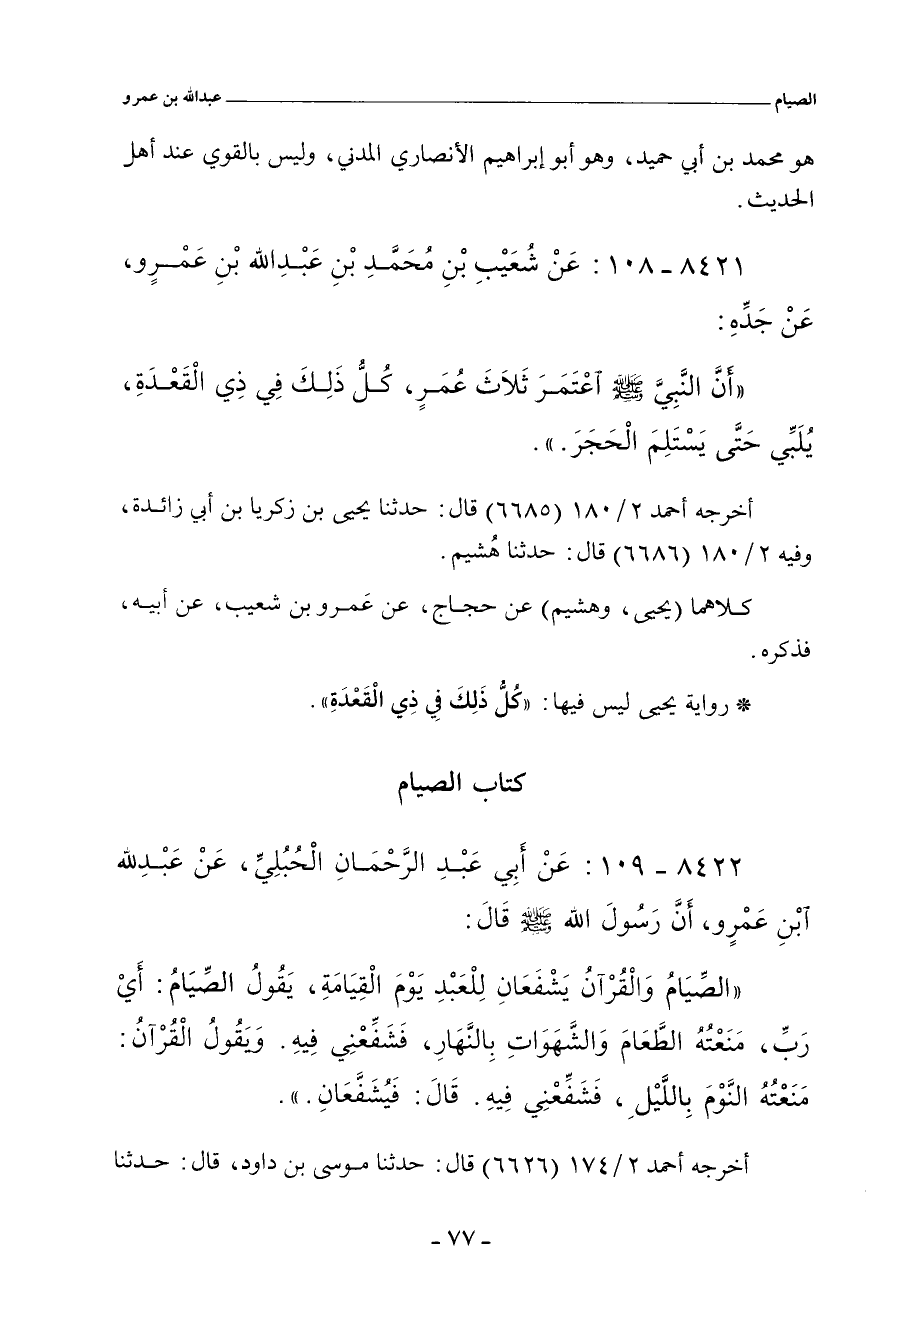 الصيام ــــــــــــــــــــ عبدالله بن عمرو
هو محمد بن أبي حميد، وهو أبو إبراهيم الأنصاري المدني، وليس بالقوي عند أهل
الحديث.
٨٤٢١ ـ ١٠٨: عَنْ شُعَيْبِ بْنِ مُحَمَّدِ بْنِ عَبْدِالله بْنِ عَمْرٍو،
عَنْ جَدِّهِ:
«أَنَّ النَّبِيَّ ﷺ ٱعْتَمَرَ ثَلَاثَ عُمَرٍ، كُلُّ ذَلِكَ فِي ذِي الْقَعْدَةِ،
يُلَبِّي حَتَّى يَسْتَلِمَ الْحَجَرَ.».
أخرجه أحمد ٢/ ١٨٠ (٦٦٨٥) قال: حدثنا يحيى بن زكريا بن أبي زائدة،
وفيه ٢/ ١٨٠ (٦٦٨٦) قال: حدثنا هُشيم.
كلاهما (يحيى، وهشيم) عن حجاج، عن عَمرو بن شعيب، عن أبيه،
فذكره.
* رواية يحيى ليس فيها: «كُلُّ ذَلِكَ فِي ذِي الْقَعْدَةِ».
كتاب الصيام
٨٤٢٢ ـ ١٠٩: عَنْ أَبِي عَبْدِ الرَّحْمَانِ الْحُبُلِيِّ، عَنْ عَبْدِالله
ٱبْنِ عَمْرٍو، أَنَّ رَسُولَ الله ﷺ قَالَ:
«الصِّيَامُ وَالْقُرْآنُ يَشْفَعَانِ لِلْعَبْدِ يَوْمَ الْقِيَامَةِ، يَقُولُ الصِّيَامُ: أَيْ
رَبِّ، مَنَعْتُهُ الطَّعَامَ وَالشَّهَوَاتِ بِالنَّهَارِ، فَشَفِّعْنِي فِيهِ. وَيَقُولُ الْقُرْآنُ:
مَنَعْتُهُ النَّوْمَ بِاللَّيْلِ، فَشَفِّعْنِي فِيهِ. قَالَ: فَيُشَفَّعَانِ.».
أخرجه أحمد ٢/ ١٧٤ (٦٦٢٦) قال: حدثنا موسى بن داود، قال: حدثنا
ـ ٧٧ ـ